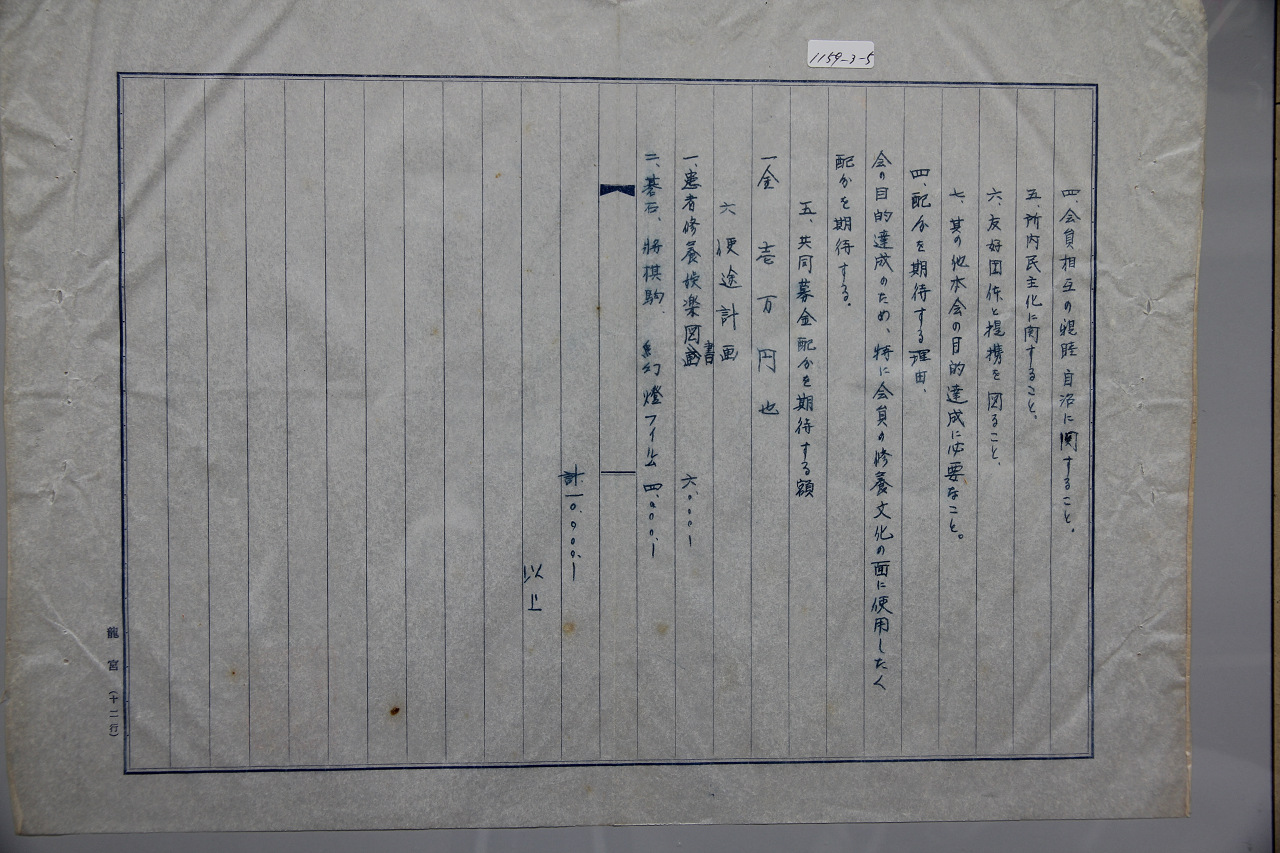 1159-3-5
四、会員相互の親睦自治に関すること、
五、所内民主化に関すること、
六、友好団体と提携を図ること、
七、其の他本会の目的達成に必要なこと。
四、配分を期待する理由、
会の目的達成のため、特に会員の修養文化の面に使用したく
配分を期待する。
五、共同募金配分を期待する額
一金壱万円也
六便途計画
一、患者修養娯楽図書 六、〇〇〇、一
二、碁石、将棋駒、幻燈フイルム 四、〇〇〇、一
計一〇、〇〇〇、一
以上
龍宮(十二行)